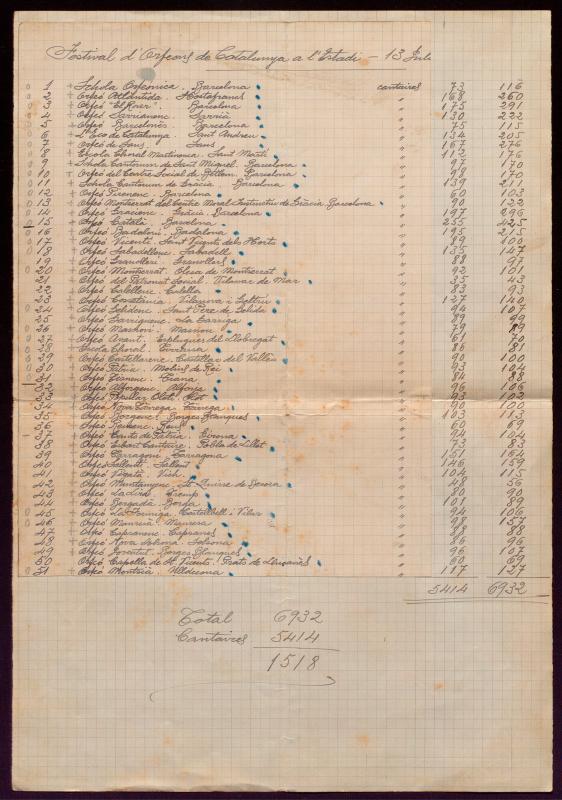 Festival d'Orfeons de Catalunya a l'Estadi - 13 Jul
0 1 + Schola Orfeonica. Barcelona cantaires 73 116
0 2 + Orfeó Atlàntida. Hostafranchs " 168 260
0 3 + Orfeó "El Roser". Barcelona " 175 291
0 4 + Orfeó Sarrianenc. Sarrià " 130 222
0 5 + Orfeó Barcelonès. Barcelona " 75 115
0 6 + L'Eco de Catalunya. Sant Andreu " 134 205
0 7 + Orfeó de Sans. Sans " 167 276
0 8 + Escola Choral Martinenca. Sant Martí " 112 176
0 9 + Schola Cantorum de Sant Miquel. Barcelona " 97 170
0 10 + Orfeó del Centre Social de Betlem. Barcelona " 98 170
0 11 + Schola Cantorum de Gràcia. Barcelona " 139 211
0 12 + Orfeó Pirenenc. Barcelona " 60 103
0 13 + Orfeó Montserrat del Centre Moral Instructiu de Gràcia Barcelona " 90 122
0 14 + Orfeó Gracienc. Gràcia. Barcelona " 197 296
15 + Orfeó Català. Barcelona " 255 425
0 16 + Orfeó Badaloní. Badalona " 195 215
0 17 + Orfeó Vicentí. Sant Vicents dels Horts " 89 100
0 18 + Orfeó Sabadellenc. Sabadell " 135 147
19 Orfeó Granollerí. Granollers " 88 97
0 20 + Orfeó Montserrat. Olesa de Montserrat " 92 101
21 Orfeó del Patronat Social. Vilassar de Mar " 35 43
22 Orfeó Calellenc. Calella " 83 93
23 + Orfeó Catalònia. Vilanova i Geltrú " 127 140
0 24 + Orfeó " 94 107
0 25 Orfeó Garriguenc. La Garriga " 89 99
0 26 + Orfeó Masnoví. Masnou " 79 89
0 27 + Orfeó Avant. Esplugues del Llobregat " 61 70
0 28 + Escola Choral. Terrassa " 78 81
0 29 + Orfeó Castellarenc. Castellar del Vallès " 90 100
0 30 + Orfeó Pàtria. Molins de Rei " 93 104
0 31 + Orfeó Tianenc. Tiana " 84 88
32 + Orfeó Alforgenc. Alforja " 96 106
33 + Orfeó Popular Olotí. Olot " 93 102
34 + Orfeó Nova Tàrrega. Tàrrega " 90 100
35 Orfeó Borgenc. Borges Blanques " 103 113
36 + Orfeó Reusenc. Reus " 60 69
37 + Orfeó Cants de Pàtria. Girona " 94 104
38 + Orfeó Pobla de Lillet " 73 83
39 + Orfeó Tarragoní. Tarragona " 151 164
40 + Orfeó Sallentí. Sallent " 146 159
41 + Orfeó Vigatà. Vich " 104 115
42 + Orfeó St. Quirse de Besora " 48 56
43 + Orfeó Tremp " 80 90
44 + Orfeó Bergadà. Berga " 107 89
0 45 + Orfeó La Formiga. Castellbell i Vilar " 94 106
0 46 + Orfeó Manresà. Manresa " 98 157
47 + Orfeó Caprarenc. Capranes " 88 88
48 + Orfeó Nova Solsona. Solsona " 86 96
49 + Orfeó Joventut. Borges Blanques " 96 107
50 + Orfeó Capella de St. Vicents. Prats de Lluçanès " 60 69
0 51 + Orfeó Montsià. Ulldecona " 117 127
5414 6932
Total 6932
Cantaires 5414
1518